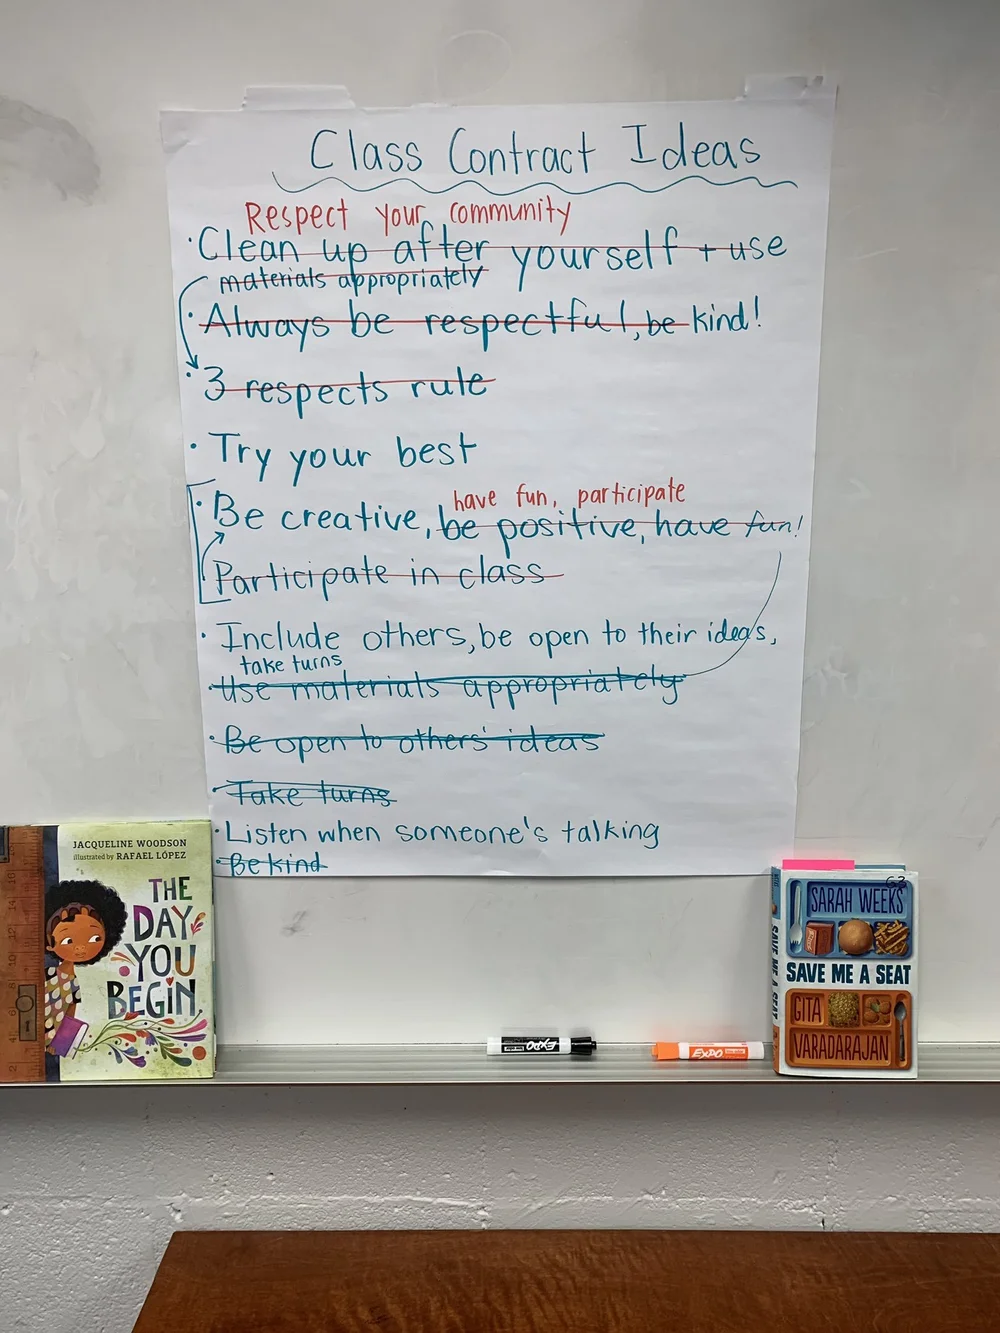 Class Contract Ideas
Respect your community
· Clean up after yourself + use
materials appropriately
· Always be respectful, be kind!
· 3 respects rule
· Try your best
have fun, participate
· Be creative, be positive, have fun!
Participate in class
· Include others, be open to their ideas,
take turns
· Use materials appropriately
· Be open to others' ideas
· Take turns
· Listen when someone's talking
· Be kind
JACQUELINE WOODSON
illustrated by RAFAEL LÓPEZ
THE
DAY
YOU
BEGIN
SARAH WEEKS
SAVE ME A SEAT
GITA
VARADARAJAN
SAVE ME A SEAT
EXPO
EXPO